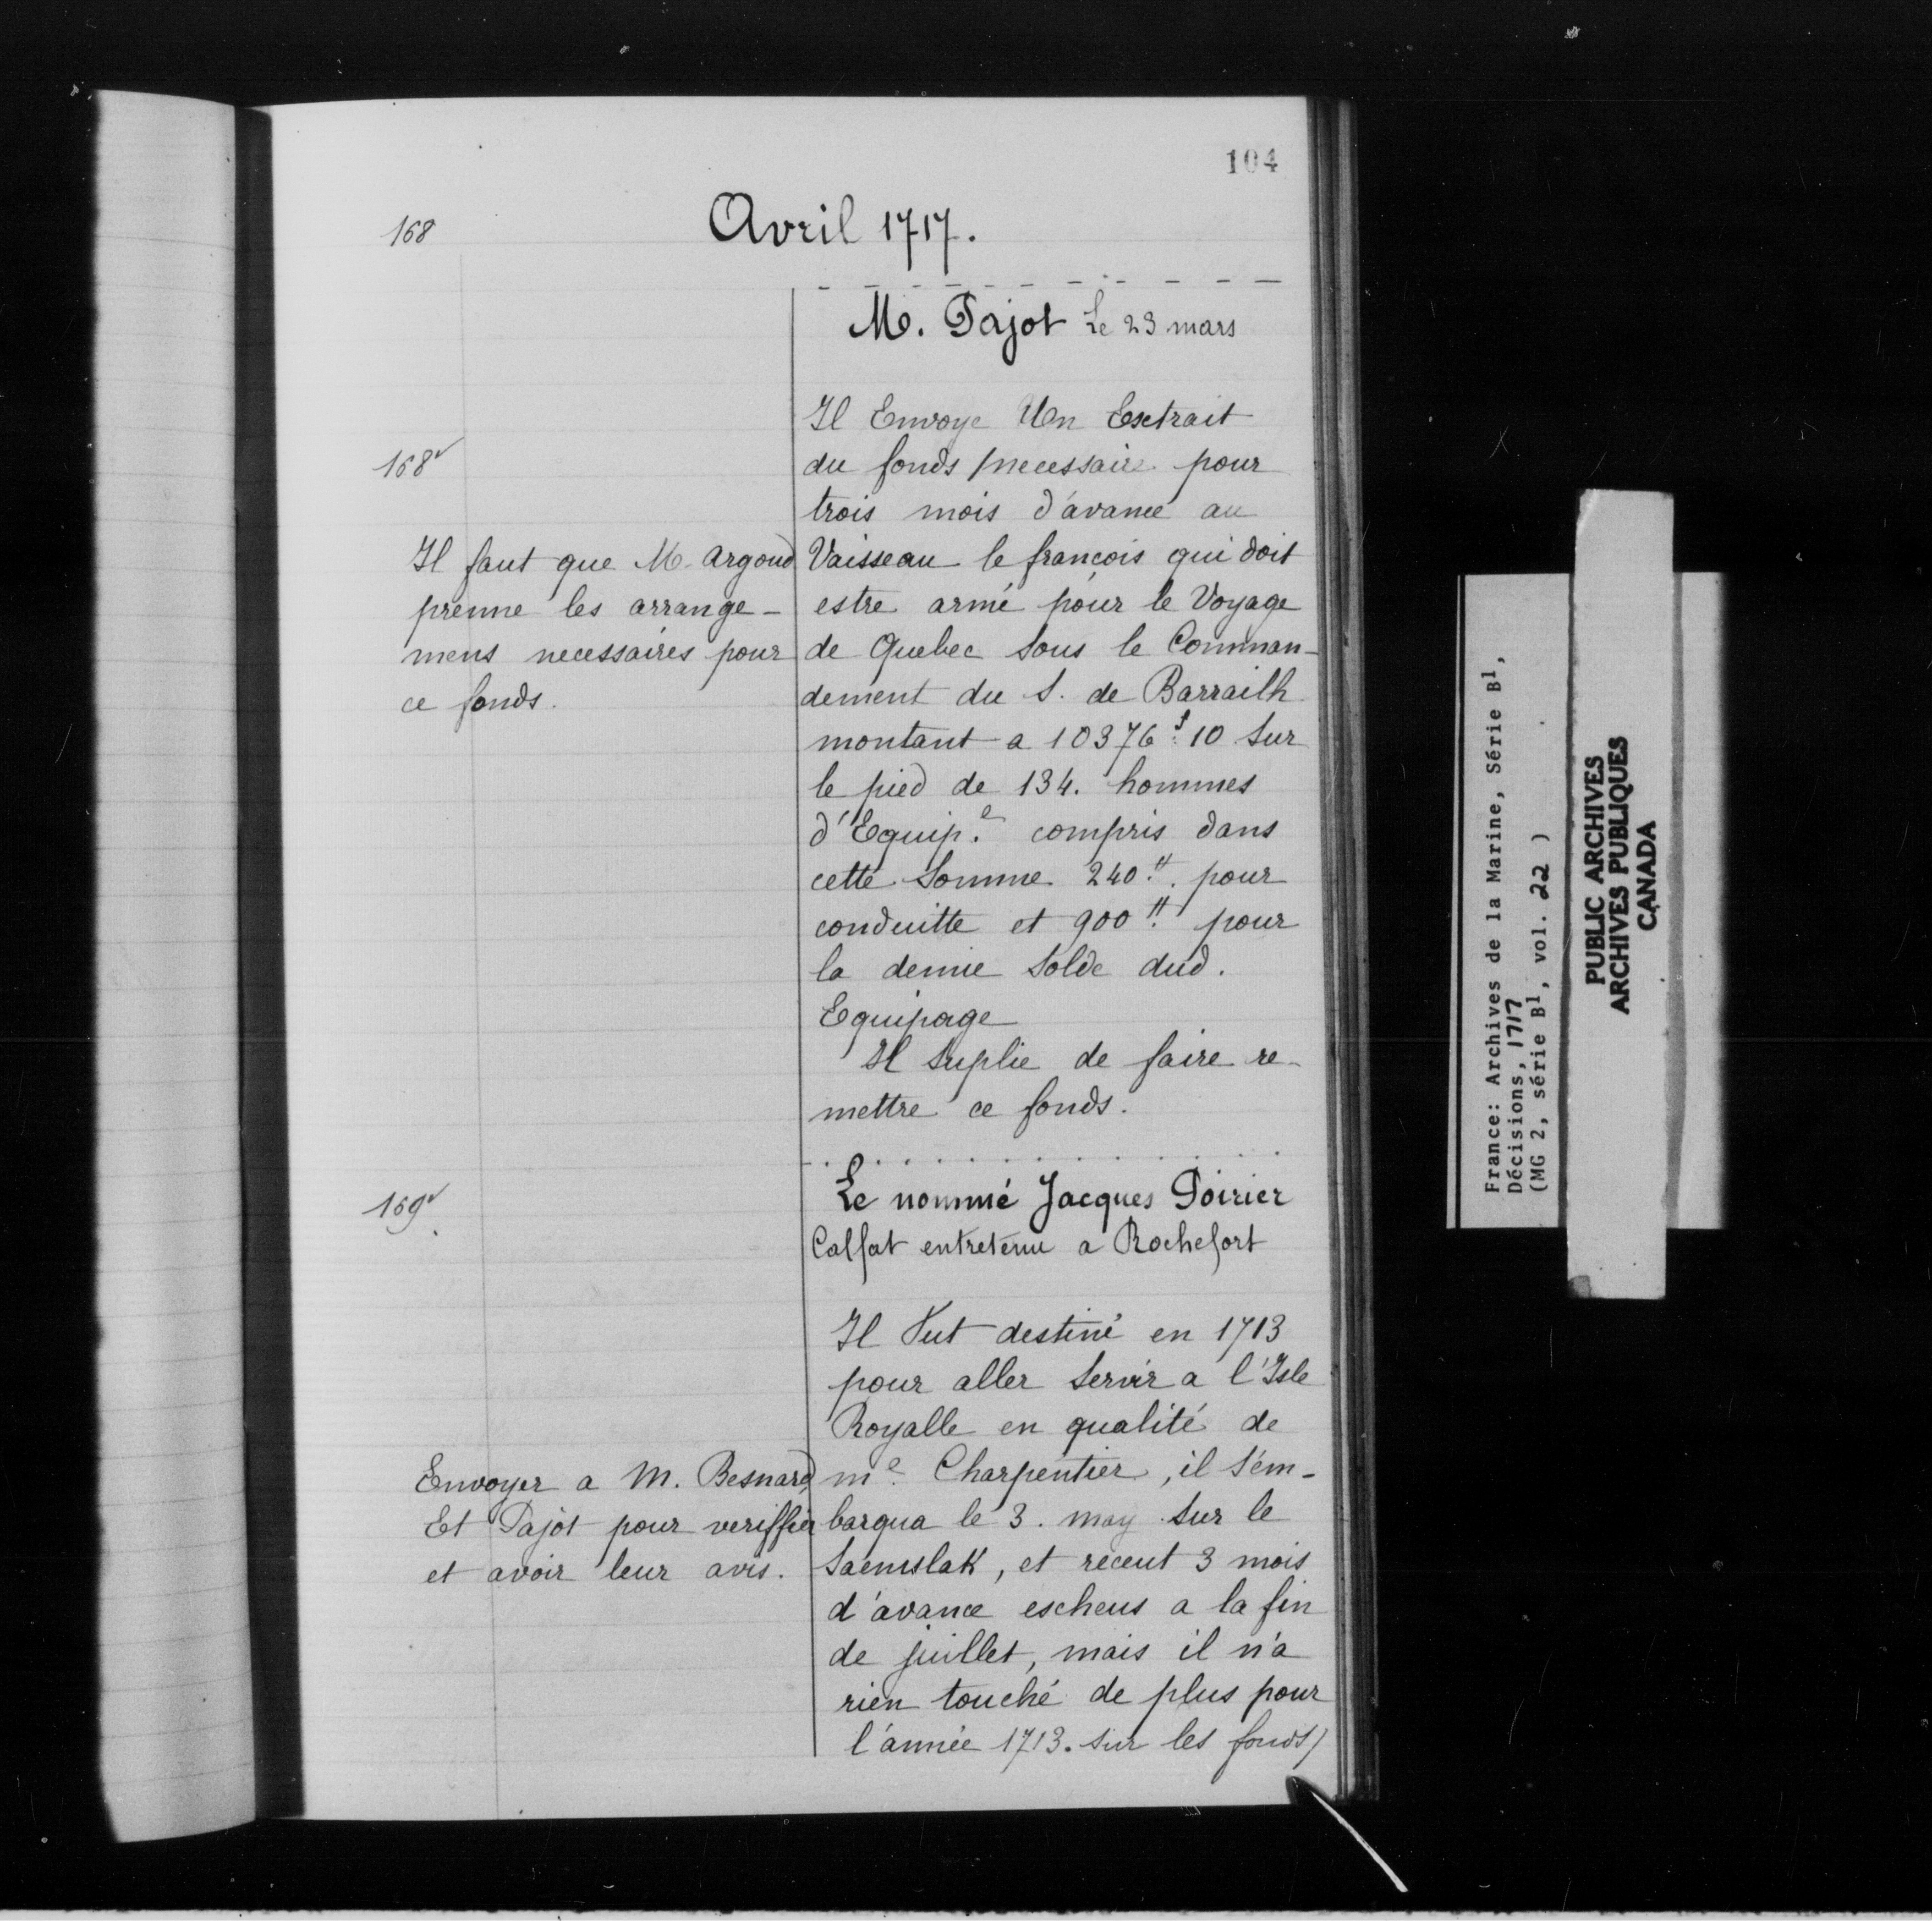 104
168
Avril 1717.
M. Pajot Le 23 mars
Il Envoye Un Esctrait
168v
du fonds /necessaire pour
trois mois d'avance au
Vaisseau le francois qui doit
estre armé pour le Voyage
de Quebec sous le Comman-
dement du S. de Barrailh
montant a 10376# 10 sur
le pied de 134. hommes
d'Equip.e compris dans
cette somme 240.# pour
conduitte et 900# pour
la demie solde dud.
Equipage
Il suplie de faire re-
mettre ce fonds.
Il faut que M. Argoud
prenne les arrange-
mens necessaires pour
ce fonds.
169v
Le nommé Jacques Poirier
Calfat entretenu a Rochefort
Il fut destiné en 1713
pour aller servir a l'Isle
Royalle en qualité de
me Charpentier, il s'em-
barqua le 3. may sur le
Saemslak, et receut 3 mois
d'avance escheus a la fin
de juillet, mais il n'a
rien touché de plus pour
l'année 1713. sur les fonds/
Envoyer a M. Besnard,
Et Pajot pour veriffier
et avoir leur avis.
France: Archives de la Marine, Série B1,
Décisions, 1717
(MG 2, série B1, vol. 22 )
PUBLIC ARCHIVES
ARCHIVES PUBLIQUES
CANADA